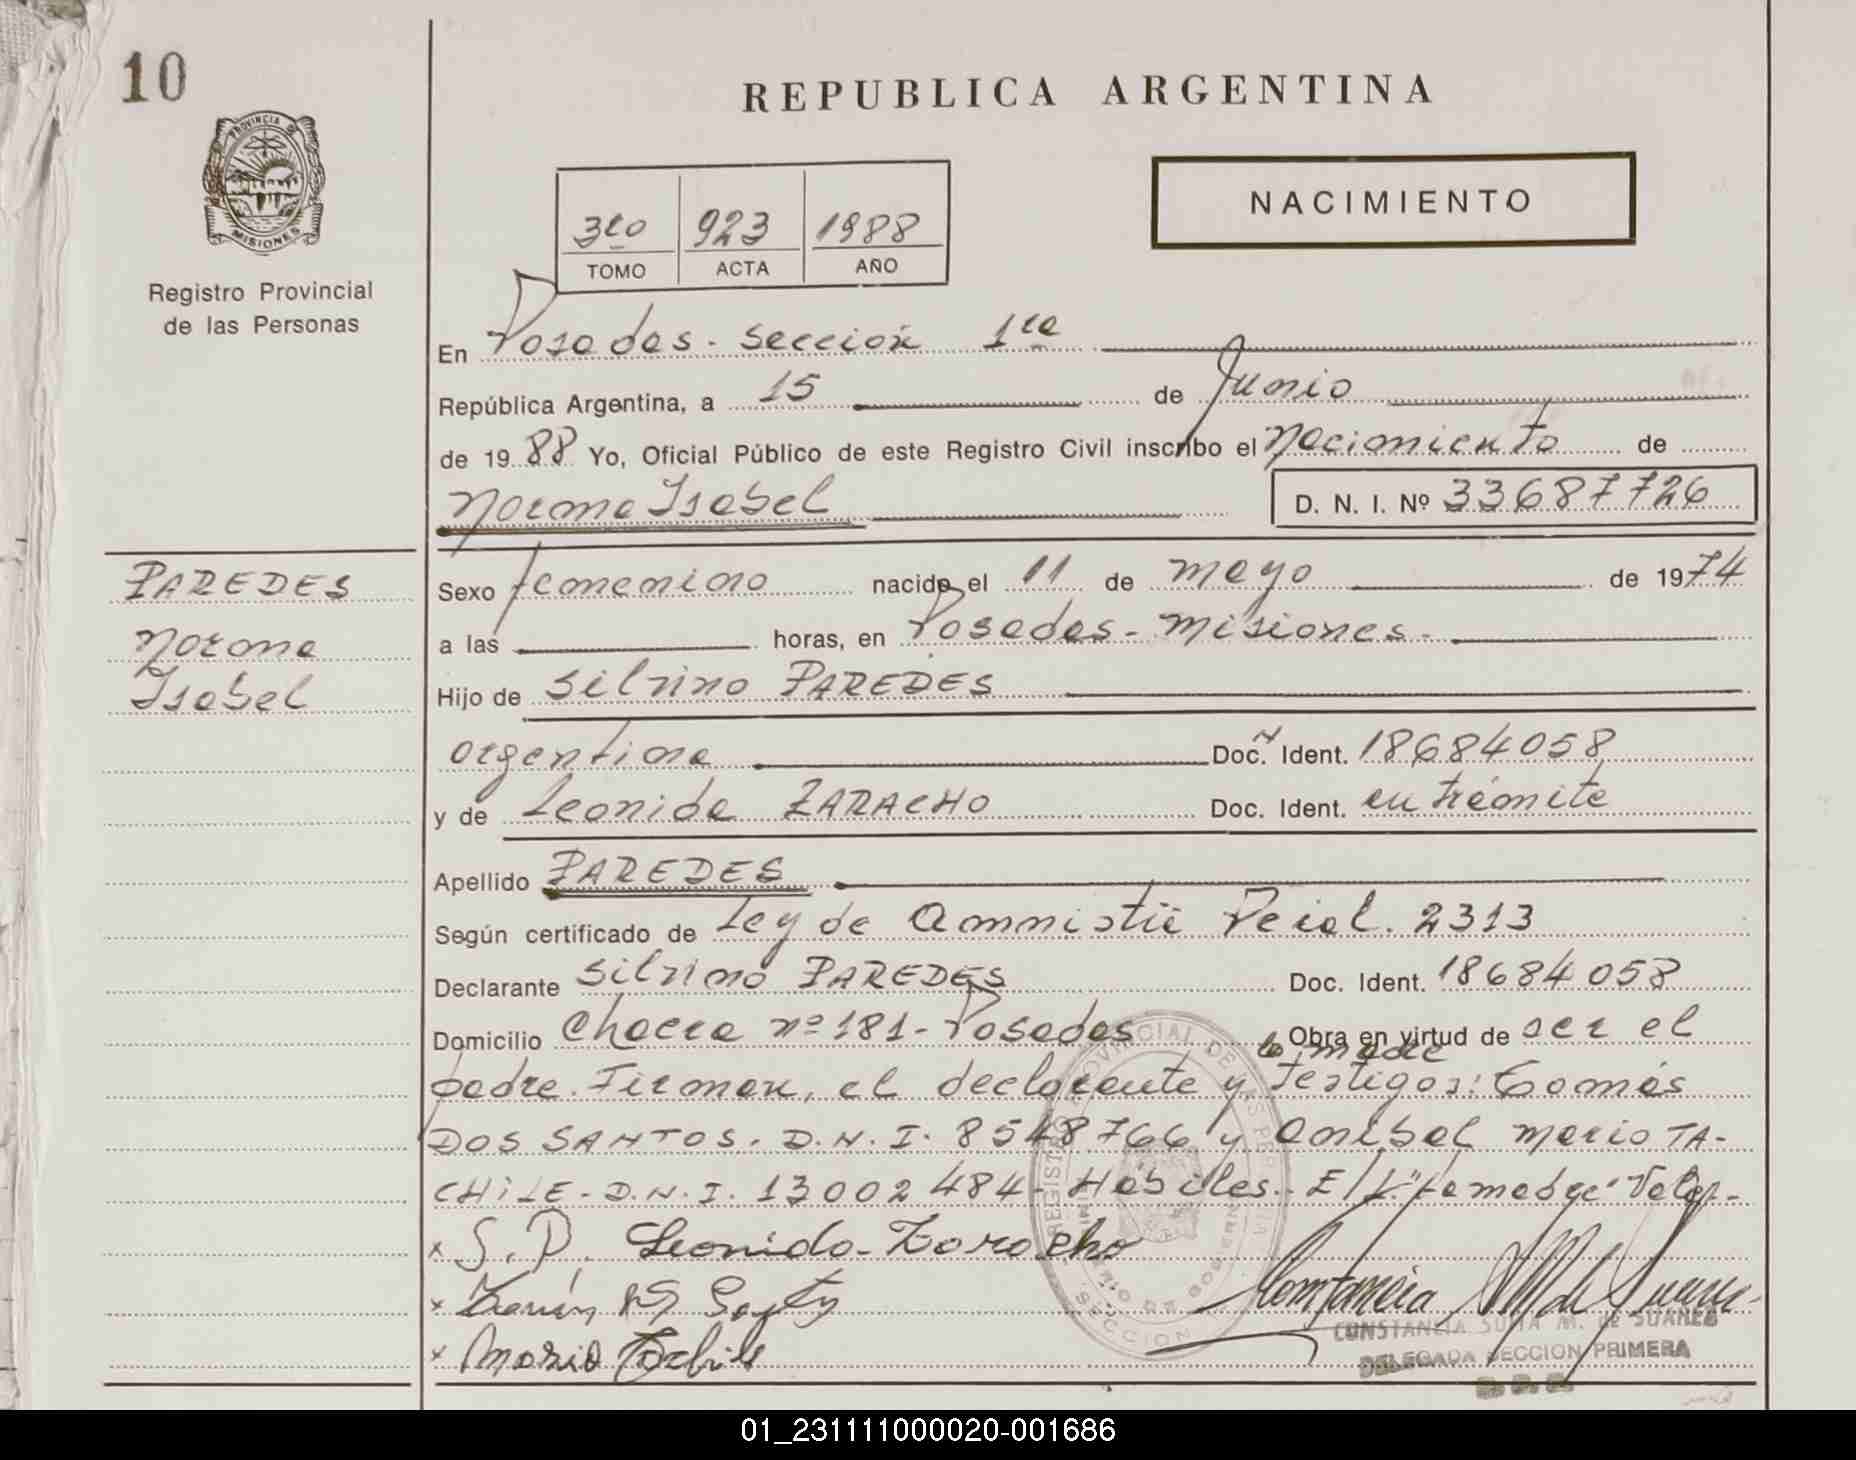 10
REPUBLICA ARGENTINA
PROVINCIA DE
MISIONES
Registro Provincial
de las Personas
3ro 923 1988
TOMO ACTA AÑO
NACIMIENTO
En Posadas - Sección 1ra
República Argentina, a 15 de Junio
de 1988 Yo, Oficial Público de este Registro Civil inscribo el Nacimiento de
Norma Isabel D. N. I. Nº 33687726
PAREDES
Norma
Isabel
Sexo femenino nacido el 11 de mayo de 1974
a las horas, en Posadas - Misiones -
Hijo de Silvino PAREDES
argentina Doc. Ident. 18684058
y de Leonida ZARACHO Doc. Ident. en trámite
Apellido PAREDES
Según certificado de Ley de Amnistía Pcial. 2313
Declarante Silvino PAREDES Doc. Ident. 18684058
Domicilio Chacra nº 181 - Posadas Obra en virtud de ser el
la madre
padre. Firman, el declarante y testigos: Tomás
DOS SANTOS. D.N.I. 8548766 y Anibal Mario TA-
CHILE - D.N.I. 13002484 - Hábiles. E/L "la madre" Vale. -
x S. P. Leonida Zaracho
x
x Mario
CONSTANCIA SUNA M. de SUAREZ
DELEGADA SECCION PRIMERA
R. P. P.
01_231111000020-001686